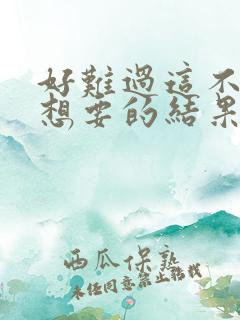 好難過這不
想要的結果
西瓜保熟
未任同意禁止轉載